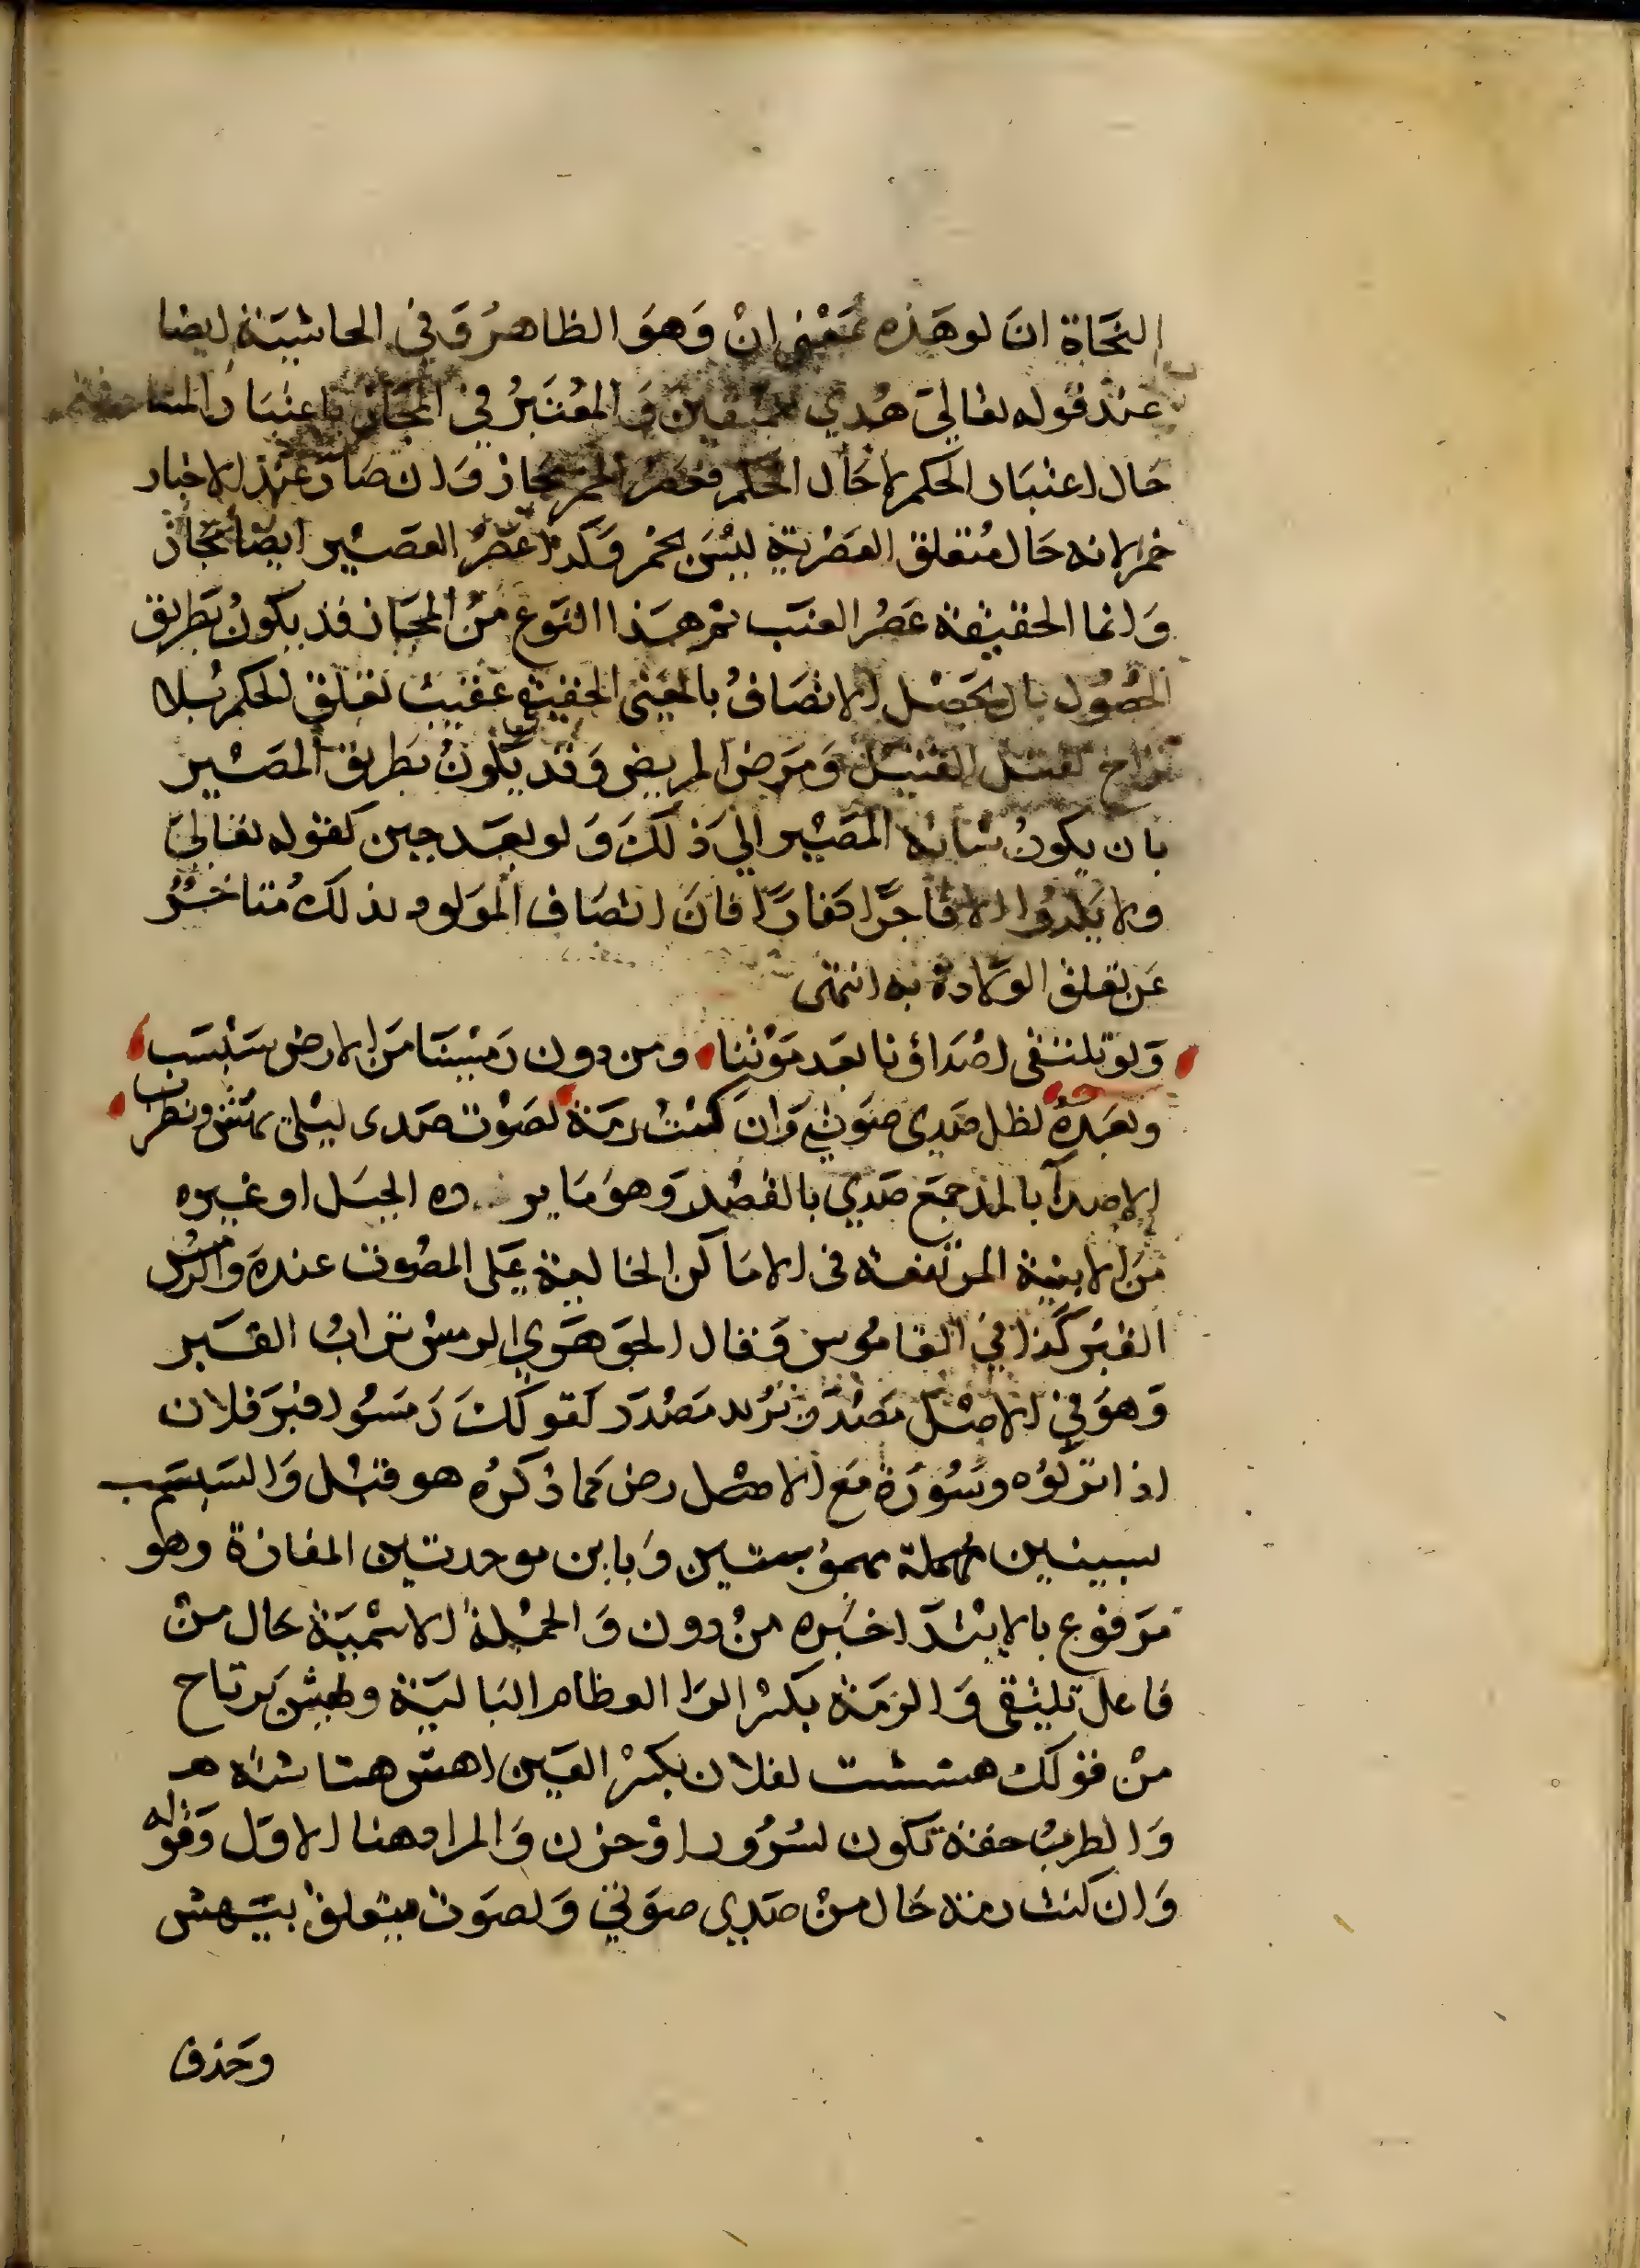 النحاة ان لو هذه بمعنى انْ وَهوَ الظاهرُ وَفي الحاشيَة ايضا
عند قوله تعاليَ هُدي للمتقين وَ المعُتَبرُ في المجَاز باعتبَار
حَال اعتبَار الحكم لا حَال الحكم فعَصْر الخمر مجاز وَان صَارَ عند الاخبار
خمرا لانه حَال مُتعلق العَصْرية ليسَ بخمر وَكذا عَصْرُ العصَير ايضا مجَاز
وَانما الحقيقة عَصْرُ العنَب ثم هَذا النوَع منُ المجاز قد يكونُ بَطريق
الحصُول بان يحَصْل الاتصَافُ بالمعَنى الحقيقي عقيب تعَلق الحكم بُلا
تراخ لقتل القتيل وَمرَض المريض وَقد يَكونُ بَطريق المصَير
بان يكونُ شانه المصَير الي ذلكَ وَ لو بعَد حين كقوله تعاليَ
ولا يَلدُوا الا فاجرًا كفارًا فانَ اتصَاف الموَلود بذلك مُتاخرُ
عَن تعلق الوَلادة به انتهى
وَلوْ تلتقى اصْدَاؤنا بعَد مَوْتنا ومن دون رَمْسَينَا مَن الارض سَبْسَب
وبعَدهُ لظل صَدي صَوتي وَان كنتُ رمَة لصَوْت صَدى ليْلي يهَش ويطرَب
الاصداء بالمد جمَع صَدي بالقصْر وَهوَ مَا يرده الجبَل او غيره
مَن الابنية المرتفعة في الامَاكن الخاليَة عَلى المصُوت عندهَ وَالرمسُ
القبَر كَذا في القامُوس وَقال الجوَهَري الرمسْ ترابُ القبَر
وَهوَ في الاصْل مَصْدَر مَصْدَر كقولكَ رَمَسُوا قبرَ فلان
اذا تركوُه وسَوُرَة مَع الارض كماذكرُه هو قبْل وَالسَبسَب
بسينين مُهملة وَباين موحدتين المفازة وهو
مَرفوع بالابتدَا خبَره منُ دون وَ الجمْلة الاسْميَة حَال منْ
فاعل تليْقى وَ الرمَة بكسْر الرَا العظام البَاليَة ويهشْ يَرتاح
منْ قوَلك هششت لفلان بكسْر العَين اهش هشاشة هـ
وَ الطربُ خفة تكون لسُرُور اوْ حزن وَ المراد هنا الاوَل وَقوله
وَ ان كنت رمة حَال منْ صَدي صوَتي وَلصوَت مُيتعلق بيَهش
وحَذف